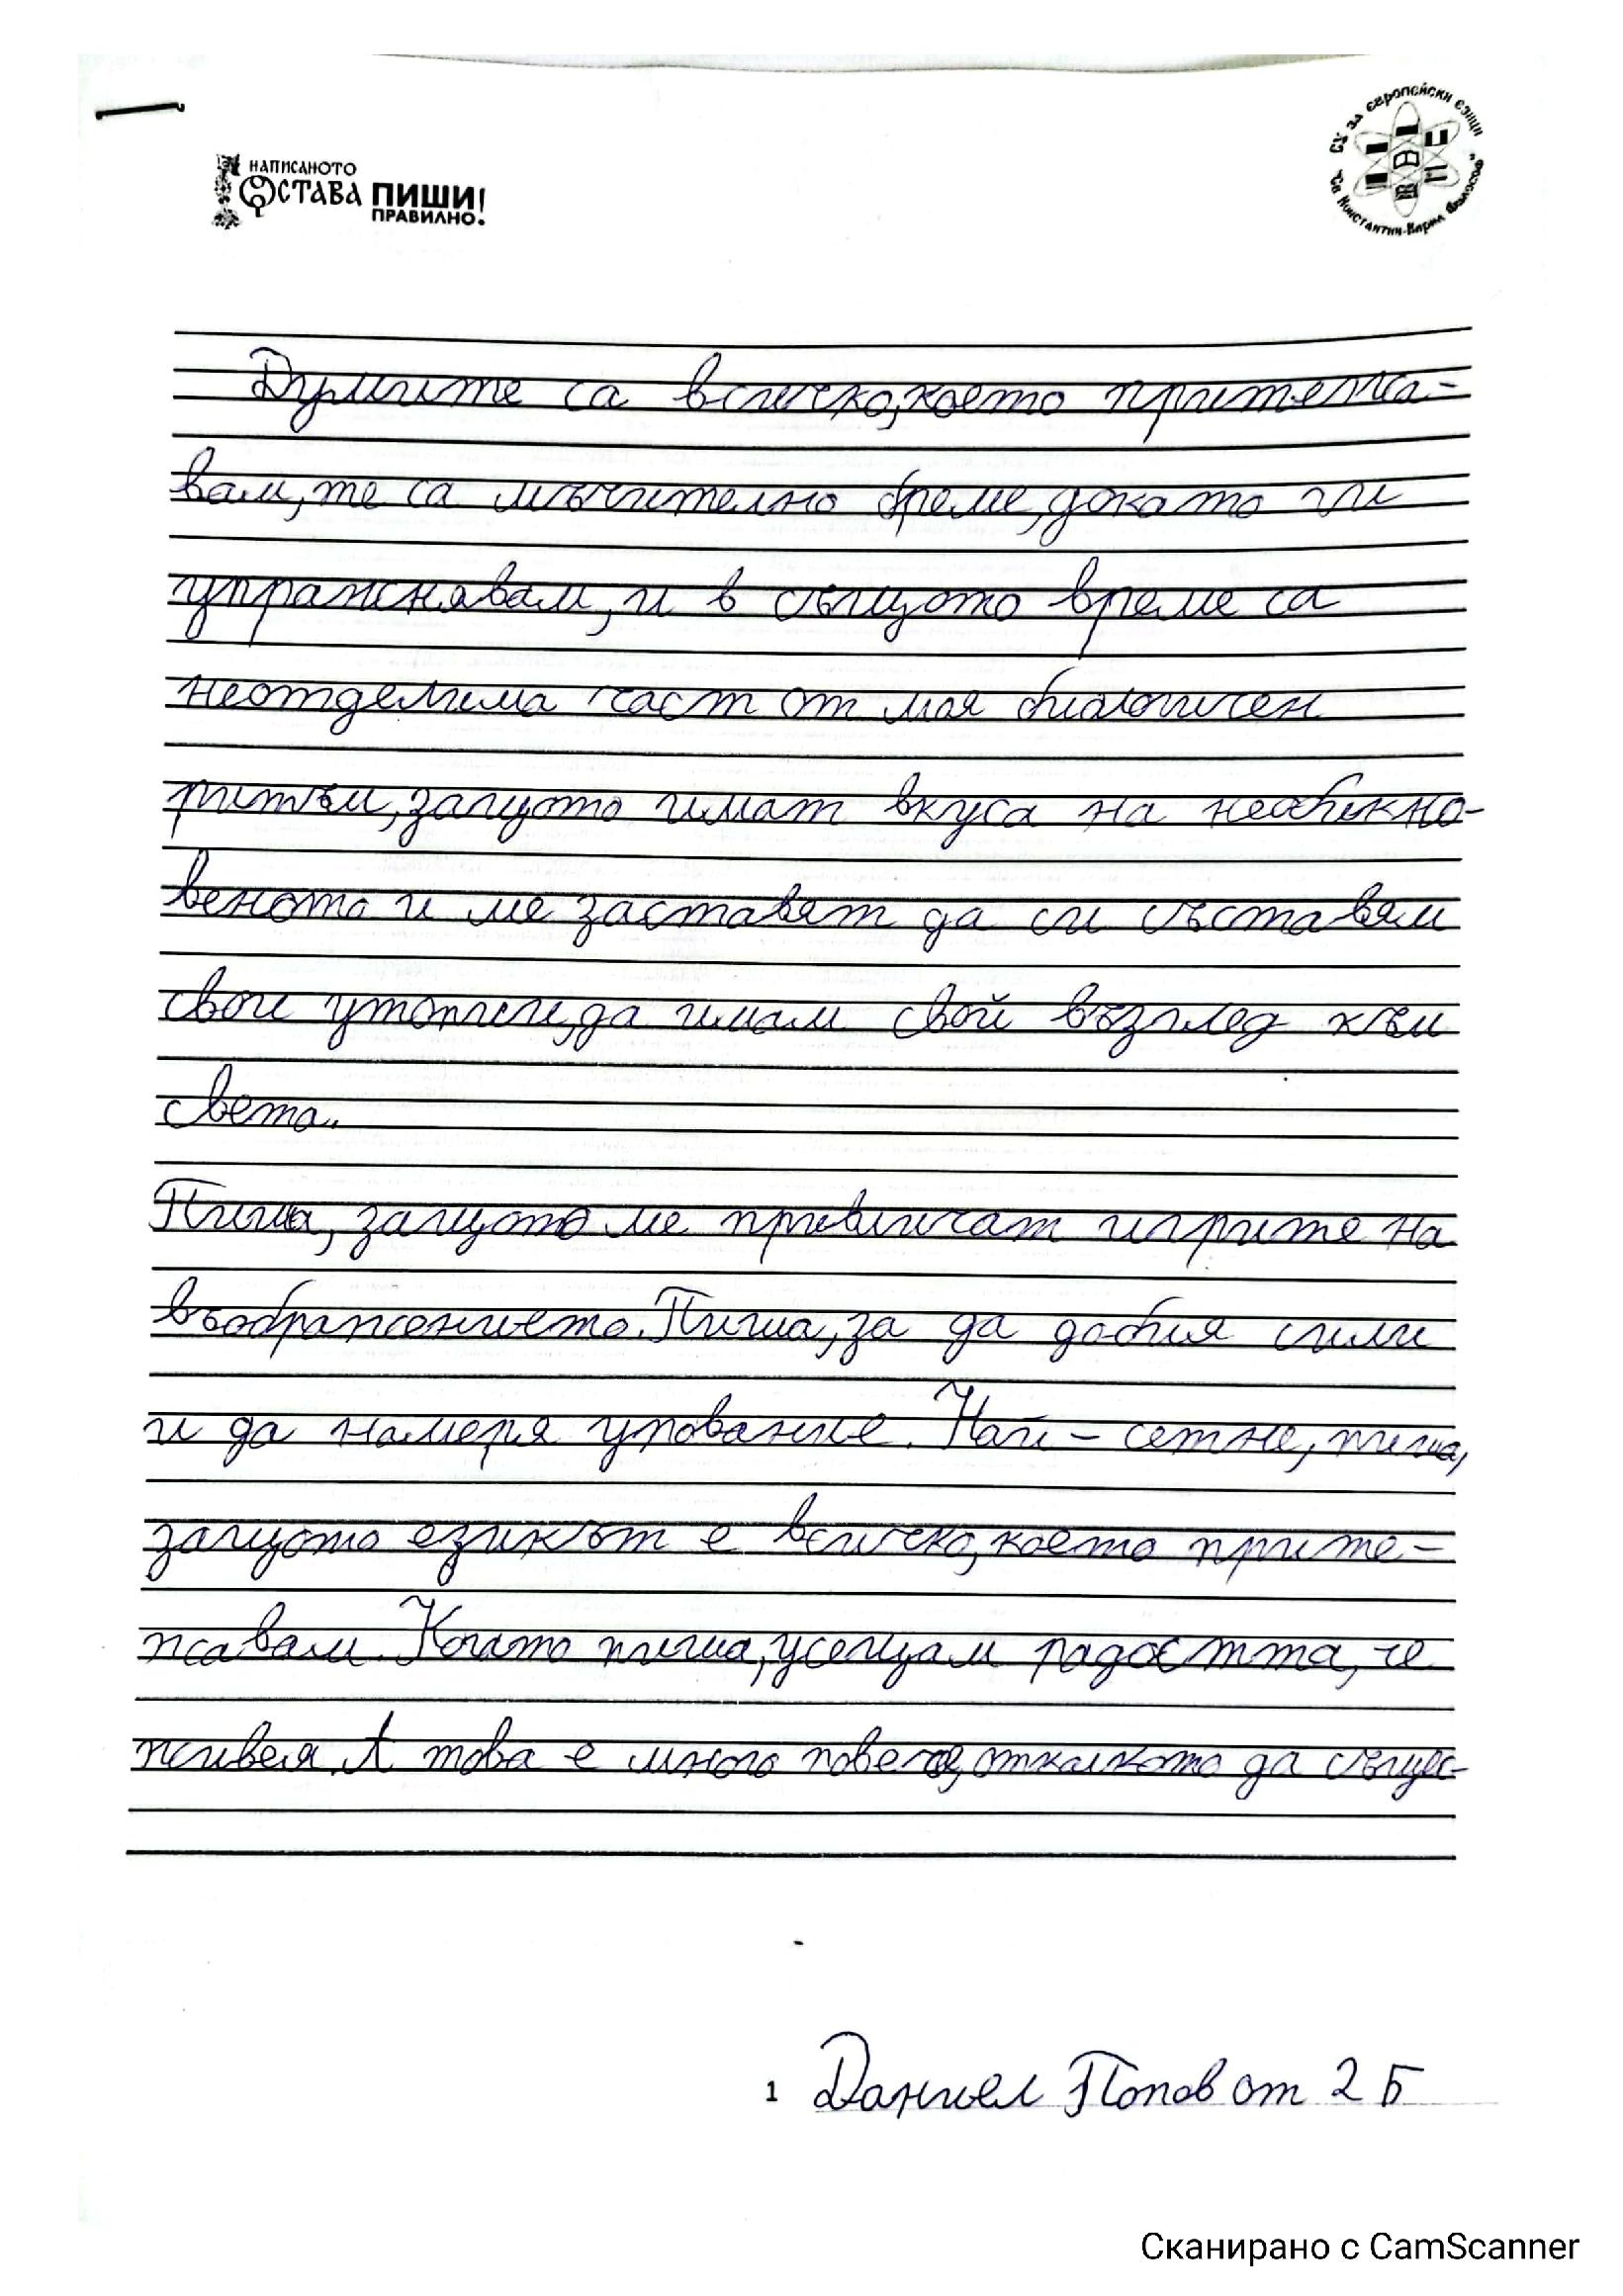 НАПИСАНОТО
ОСТАВА ПИШИ!
ПРАВИЛНО.
СУ за европейски езици
"Св. Константин-Кирил Философ"
Думите са всичко, което притежа-
вам, те са мъчително бреме, докато ги
упражнявам, и в същото време са
неотделима част от моя биологичен
ритъм, защото имат вкуса на необикно-
веното и ме заставят да си съставям
свои утопии, да имам свой възглед към
света.
Пиша, защото ме привличат игрите на
въображението. Пиша, за да добия сили
и да намеря упование. Най-сетне, пиша,
защото езикът е всичко, което прите-
жавам. Когато пиша, усещам радостта, че
живея. А това е много повече, отколкото да същес-
1 Даниел Попов от 2 Б
Сканирано с CamScanner